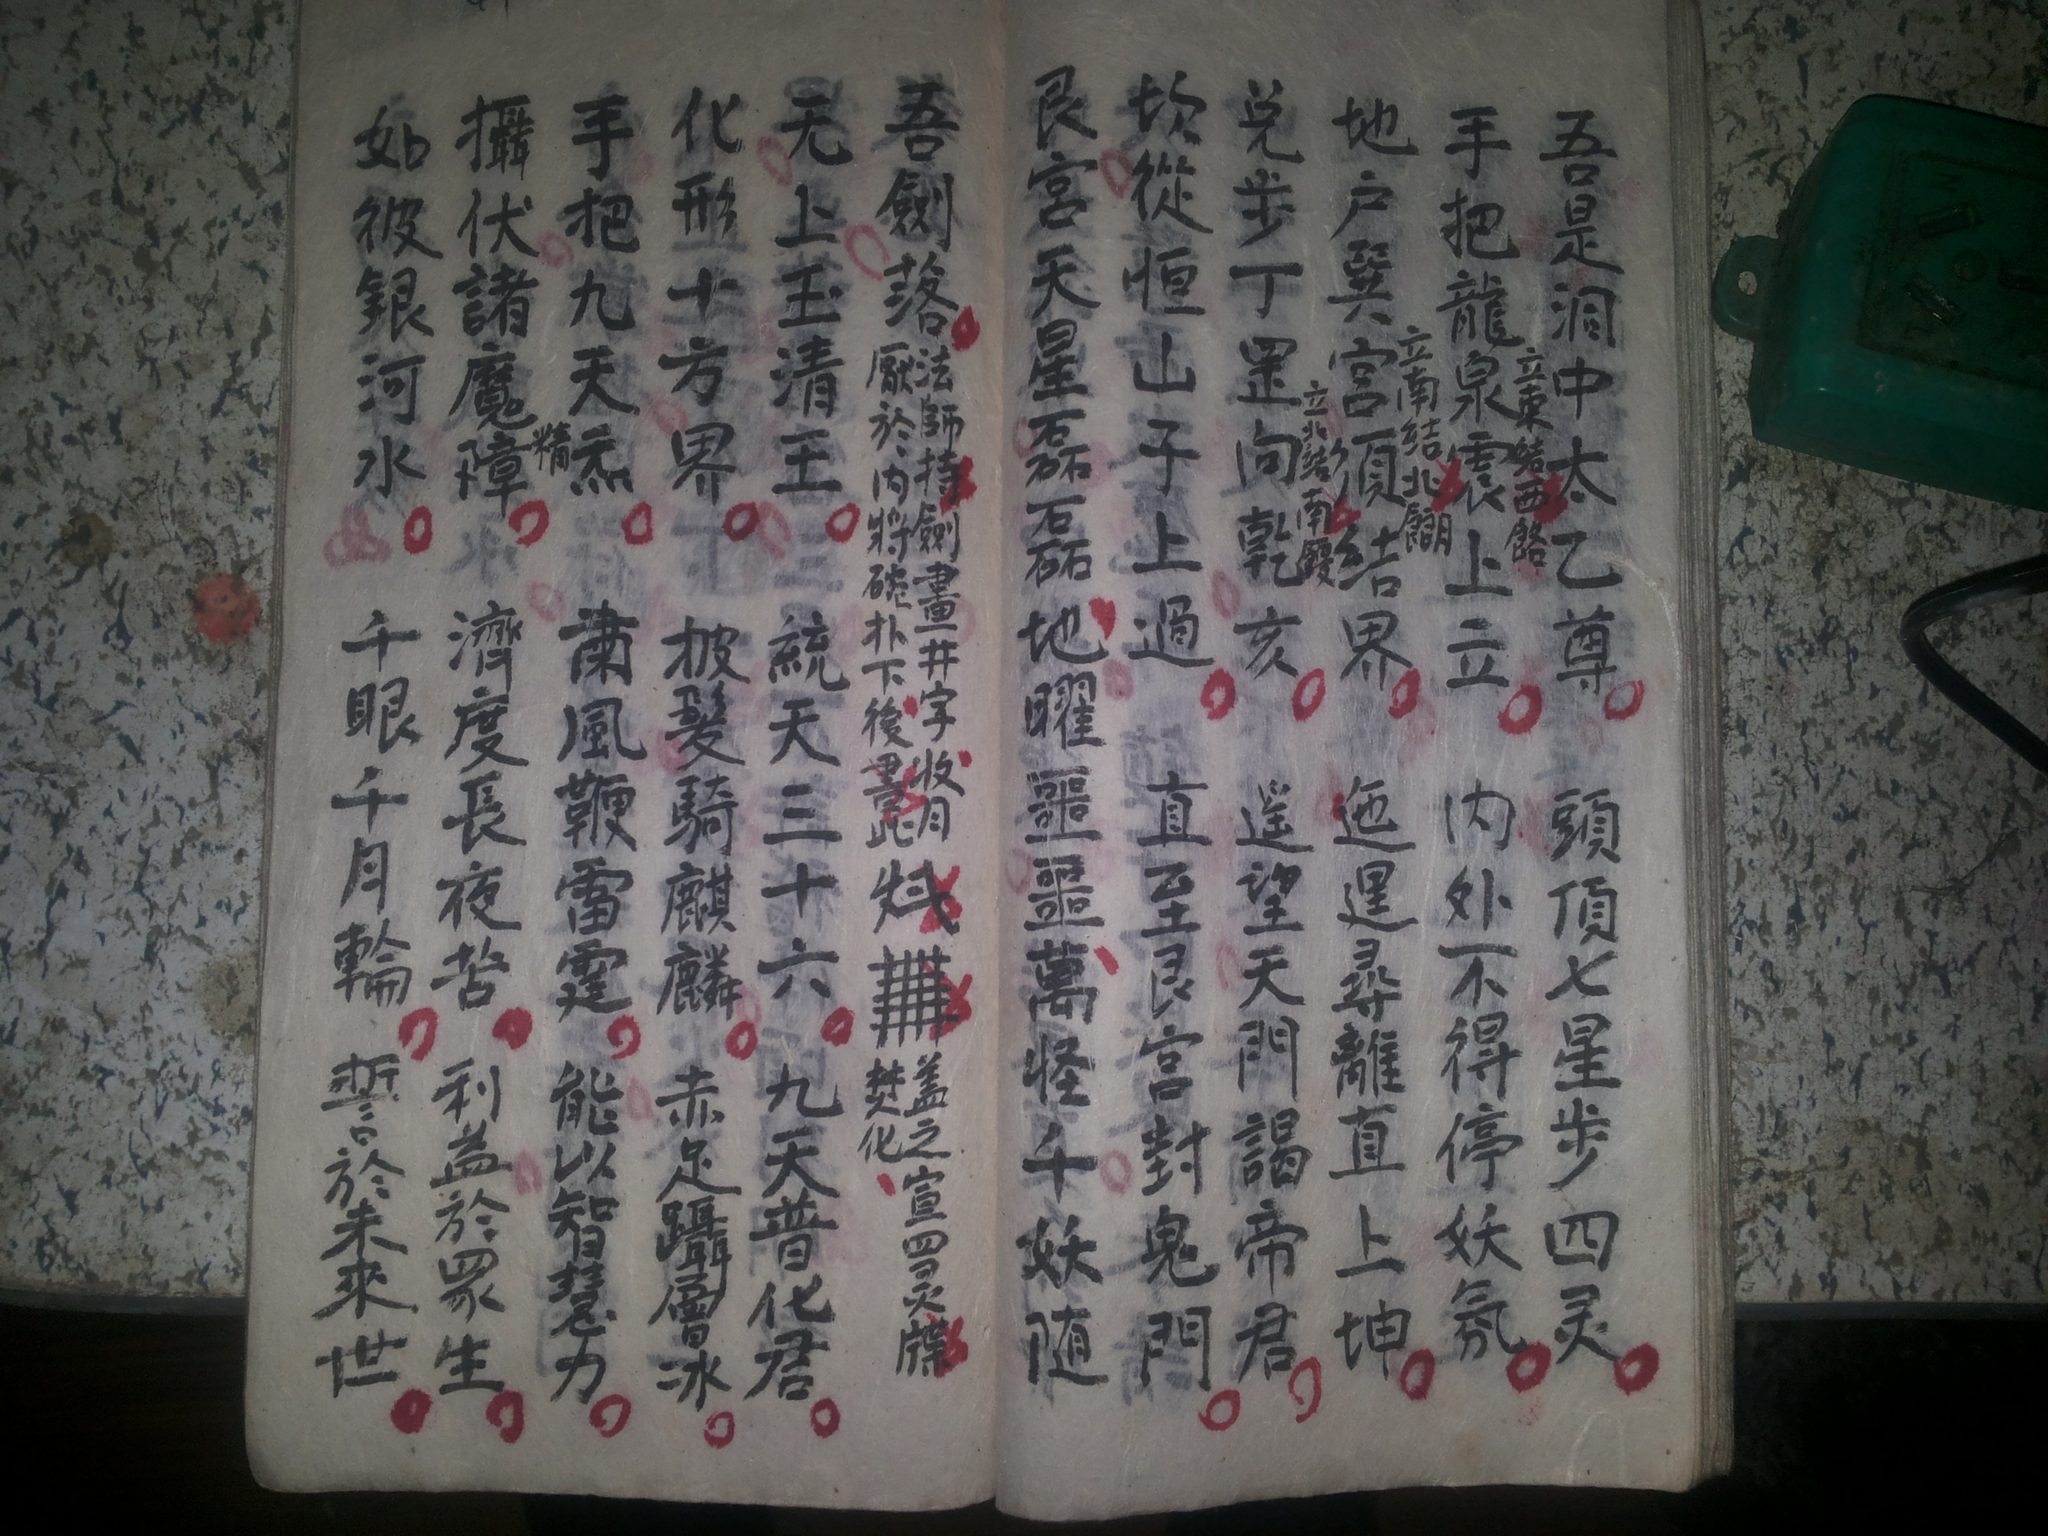 吾是洞中太乙尊 頭頂七星步四灵
手把龍泉震上立 內外不得停妖氛
立東結西
地戶巽宮須結界 迤𨓦尋離直上坤
立南結北
兌步丁罡向乾亥 遥望天門謁帝君
立北結南
坎從恒山子上過 直至艮宮封鬼門
艮宮天星磊磊地曜噩噩萬怪千妖随
吾劍落
法師持劍畫井字收月
厭於內將碗扑下後畫此
蓋之宣四灵牒
焚化
无上玉清王 統天三十六 九天普化君
化形十方界 披髮騎麒麟 赤足躡層冰
手把九天炁 肅風鞭雷霆 能以智慧力
攝伏諸魔障 濟度長夜苦 利益於眾生
精
如彼銀河水 千眼千月輪 誓於未來世